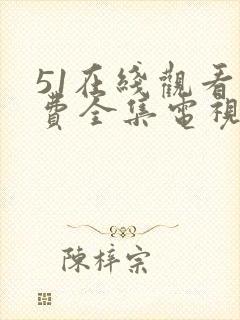 51在綫觀看
費全集電視
陳梓宗